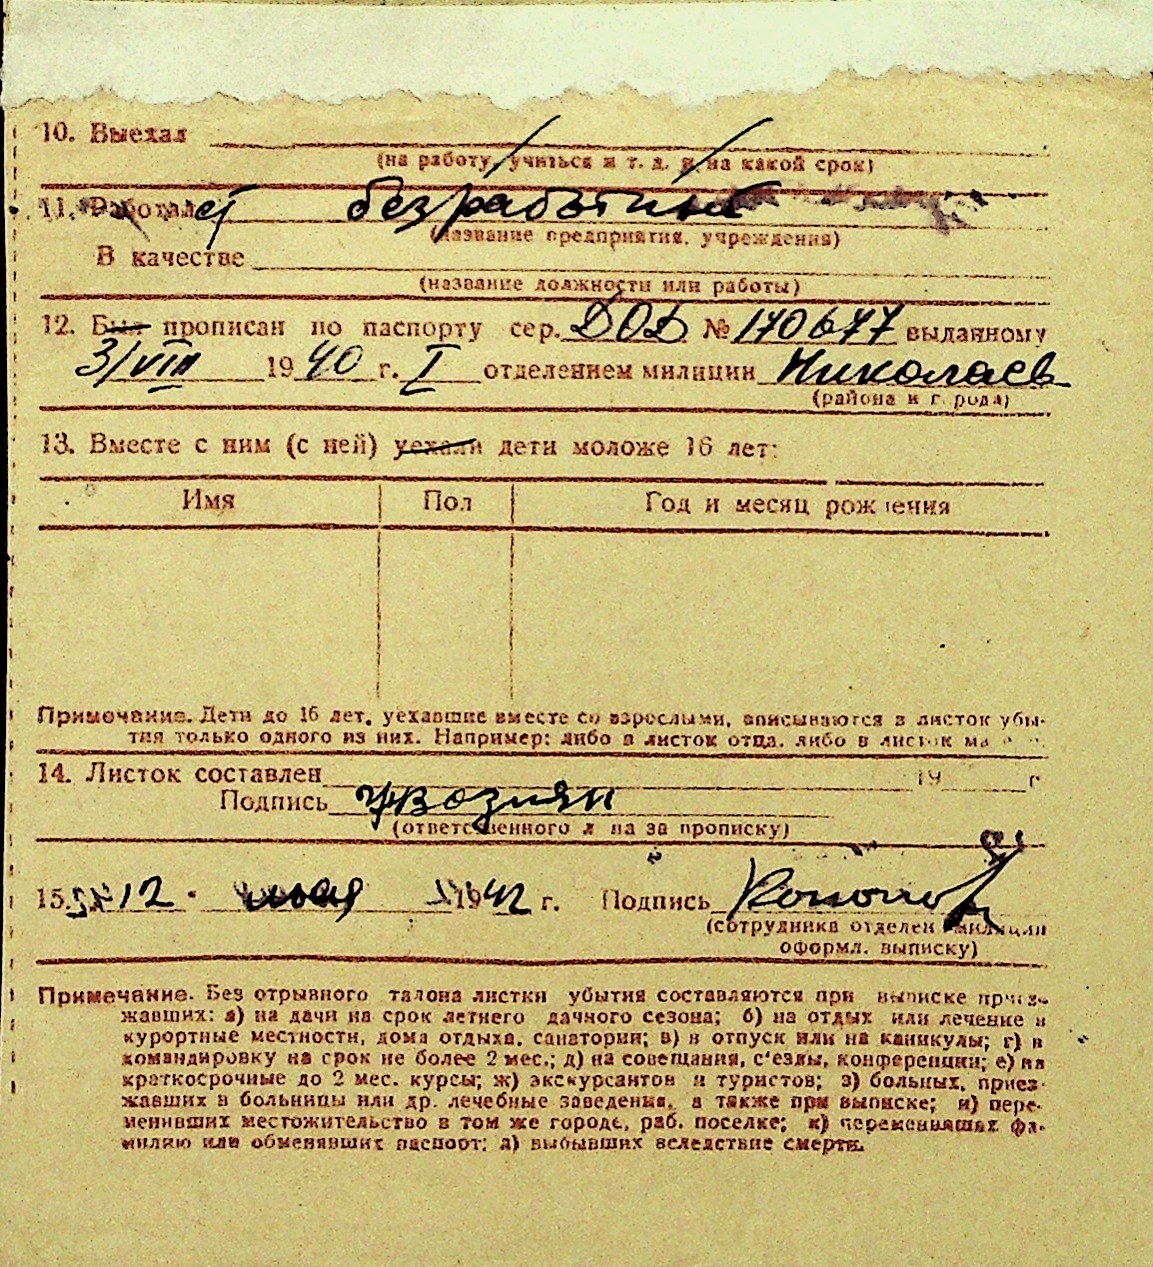 10. Выехал
(на работу, учиться и т. д. и на какой срок)
11. Работает безработный
(название предприятия, учреждения)
В качестве
(название должности или работы)
12. Был прописан по паспорту сер. ДОД № 170677 выданному
3/VIII 1940 г. I отделением милиции Николаев
(района и города)
13. Вместе с ним (с ней) уехали дети моложе 16 лет:
Имя Пол Год и месяц рождения
Примечание. Дети до 16 лет, уехавшие вместе со взрослыми, вписываются в листок убы-
тия только одного из них. Например: либо в листок отца, либо в листок
14. Листок составлен 19 г
Подпись
(ответственного лица за прописку)
15. 12 мая 1942 г. Подпись
(сотрудника отделен милиции
оформл. выписку)
Примечание. Без отрывного талона листки убытия составляются при выписке приез-
жавших: а) на дачи на срок летнего дачного сезона; б) на отдых или лечение в
курортные местности, дома отдыха, санатории; в) в отпуск или на каникулы; г) в
командировку на срок не более 2 мес.; д) на совещания, с'езды, конференции; е) на
краткосрочные до 2 мес. курсы; ж) экскурсантов и туристов; з) больных, приез-
жавших в больницы или др. лечебные заведения, а также при выписке; и) пере-
менивших местожительство в том же городе, раб. поселке; к) переменивших фа-
милию или обменявших паспорт; л) выбывших вследствие смерти.